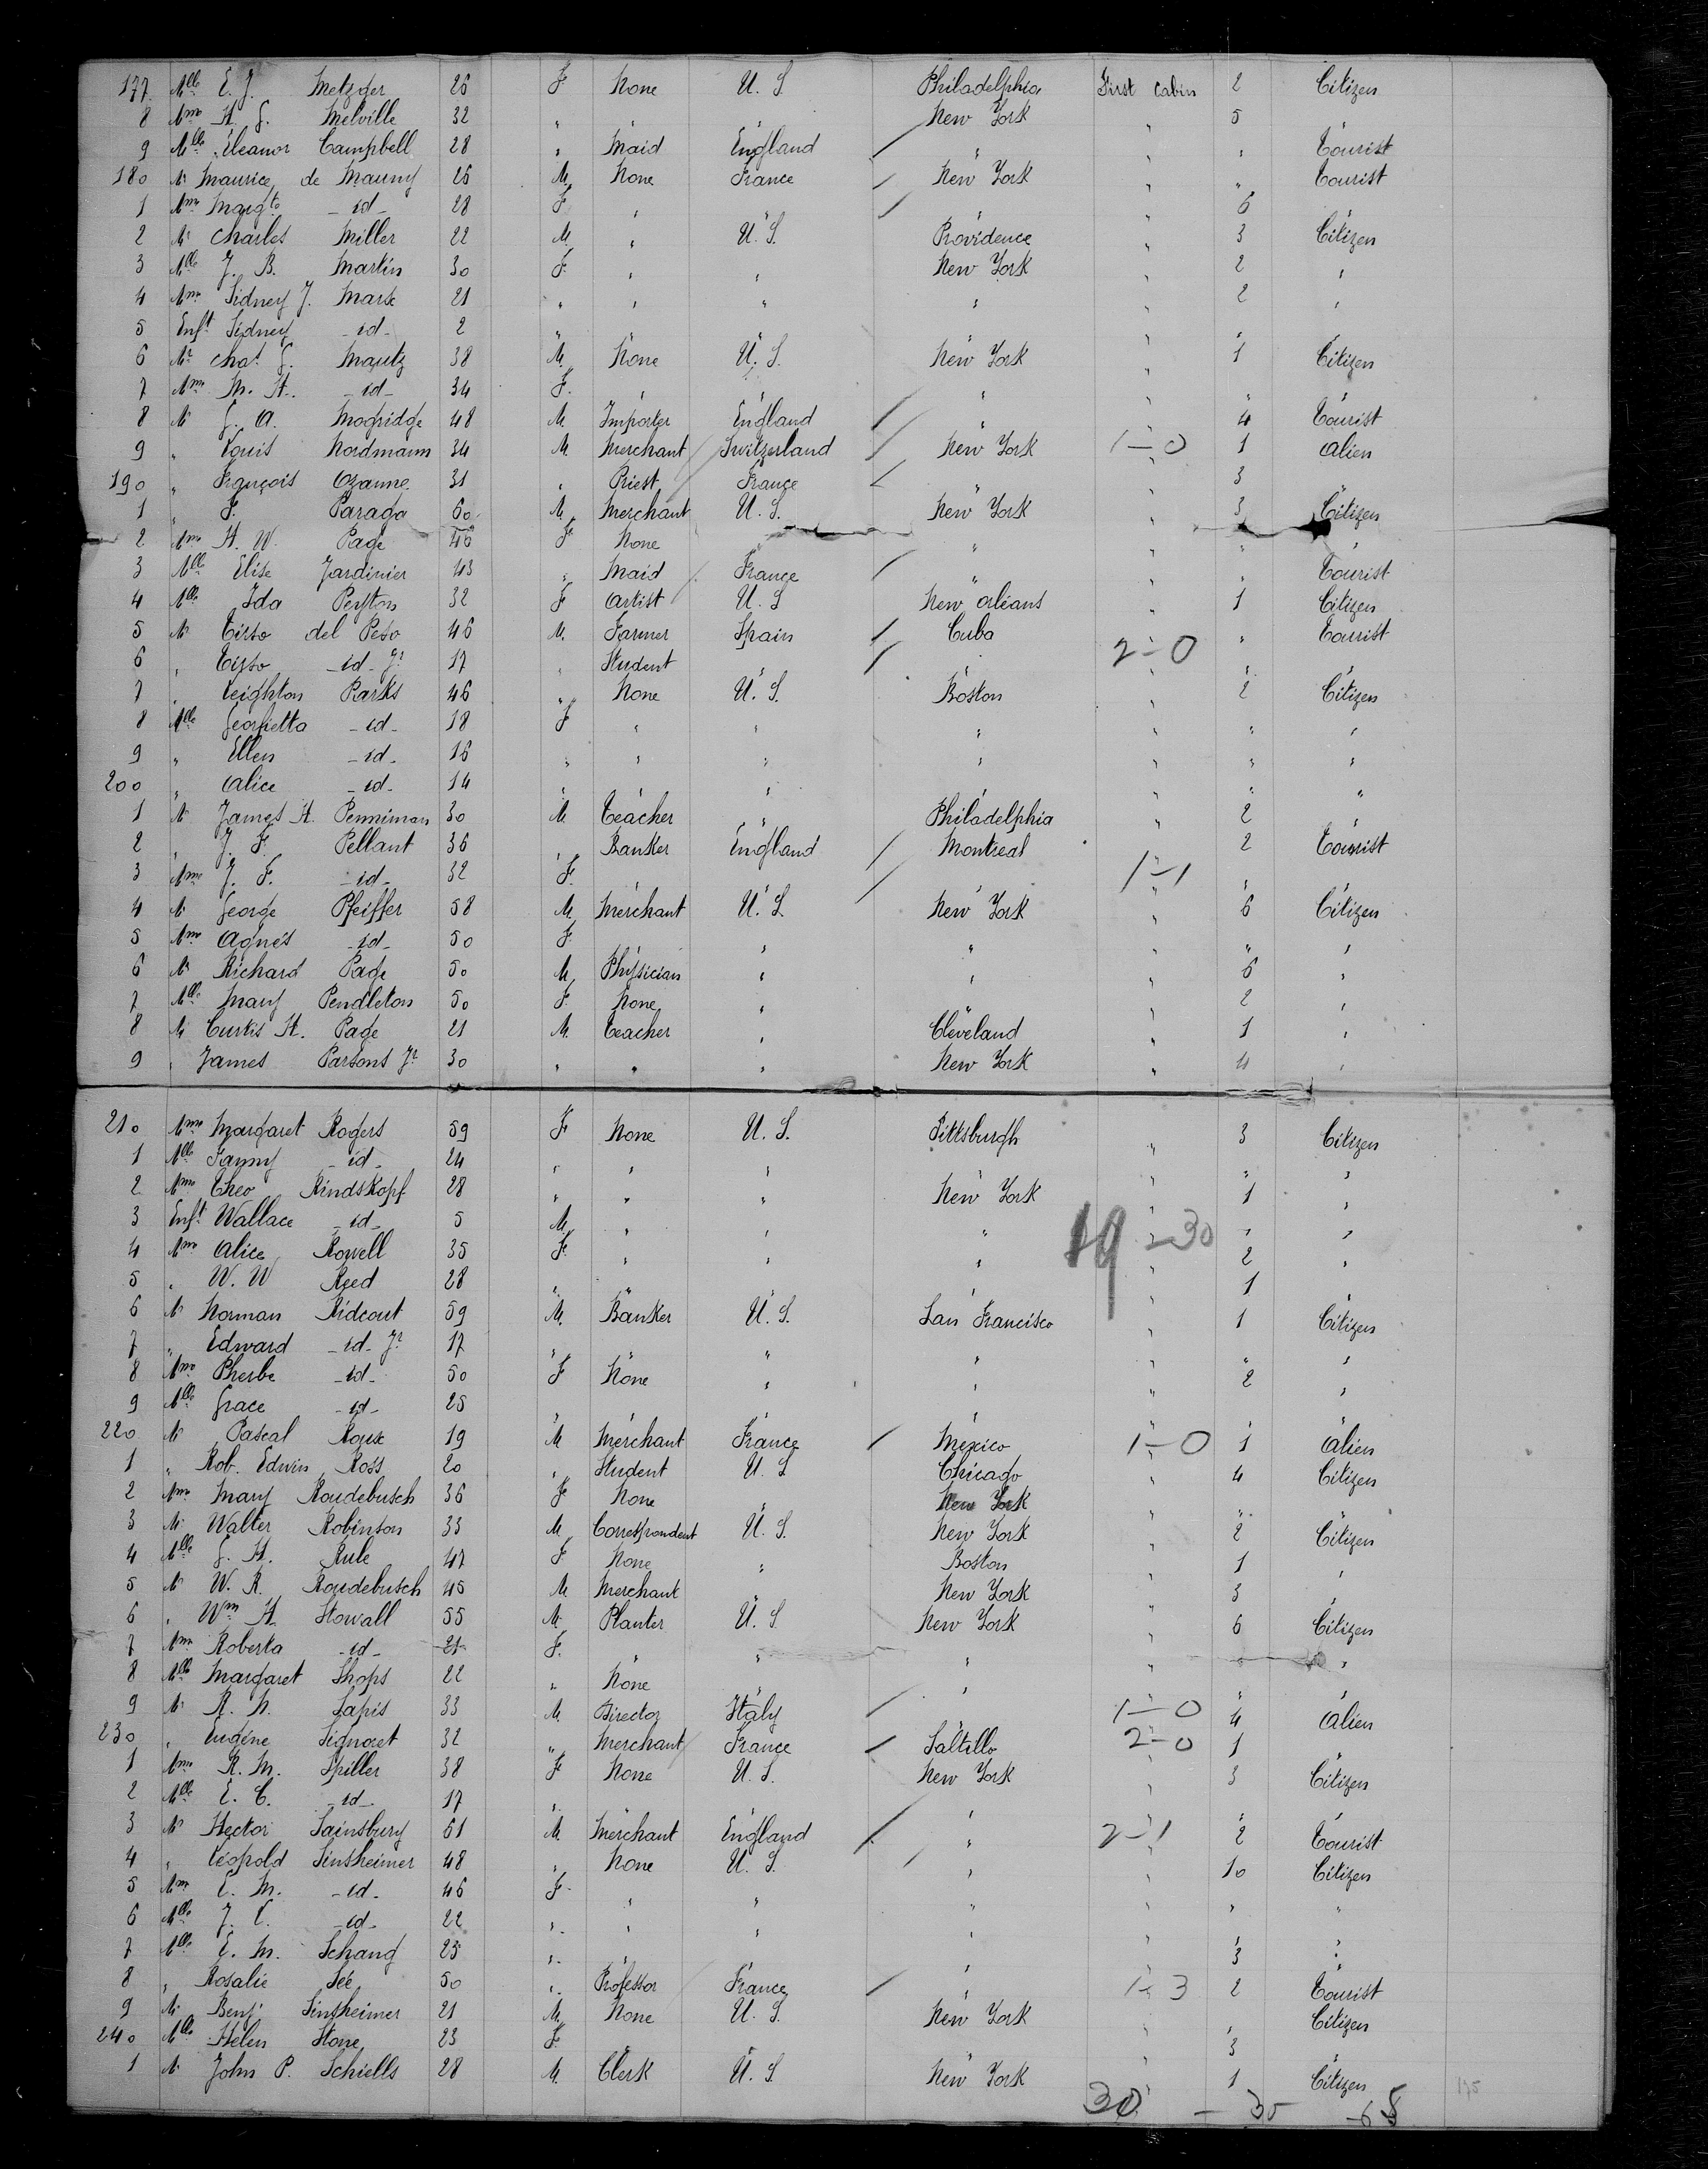 177 Mlle E. J. Metzger 26 F None U. S Philadelphia First Cabin 2 Citizen
8 Mme H. G. Melville 32 " " " New York " 5 "
9 Mlle Eleanor Campbell 28 " Maid England / " " " Tourist
180 Mr Maurice de Mauny 26 M None France / New York " " Tourist
1 Mme Margte - id - 28 F " " / " " 6 "
2 Mr Charles Miller 22 M " U. S. Providence " 3 Citizen
3 Mlle J. B. Martin 30 F " " New York " 2 "
4 Mme Sidney J. Marse 21 " " " " " 2 "
5 Enft Sidney - id - 2 " " " " " " "
6 Mr Chas G. Mautz 38 M None U. S. New York " 1 Citizen
7 Mme M. H. - id - 34 F " " " " " "
8 Mr G. A. Mogridge 48 M Importer England / " " 4 Tourist
9 " Louis Nordmann 34 M Merchant Switzerland / New York 1-0 1 Alien
190 " François Ozanne 31 " Priest France / " " 3 "
1 " F. Paraga 60 M Merchant U. S. New York " 3 Citizen
2 Mme H. W. Page 46 F None " " " " "
3 Mlle Elise Jardinier 43 " Maid France / " " " Tourist
4 Mlle Ida Peyton 32 F Artist U. S New Orleans " 1 Citizen
5 Mr Tirso del Peso 46 M. Farmer Spain / Cuba 2-0 " Tourist
6 " Tirso - id - Jr 17 " Student " / " " " "
7 " Leighton Parks 46 " None U. S. Boston " 2 Citizen
8 Mlle Georgietta - id - 18 F " " " " " "
9 " Ellen - id - 16 " " " " " " "
200 " Alice - id - 14 " " " " " " "
1 Mr James H. Penniman 30 M Teacher " Philadelphia " 2 "
2 " J. F. Pellant 36 " Banker England / Montreal 1-1 2 Tourist
3 Mme J. F. - id - 32 F " " / " " " "
4 Mr George Pfeiffer 58 M Merchant U. S. New York " 6 Citizen
5 Mme Agnes - id - 50 F " " " " " "
6 Mr Richard Page 50 M Physician " " " 6 "
7 Mlle Mary Pendleton 50 F None " " " 2 "
8 Mr Curtis H. Page 21 M. Teacher " Cleveland " 1 "
9 " James Parsons Jr 30 " " " New York " 4 "
210 Mme Margaret Rogers 59 F None U. S. Pittsburgh " 3 Citizen
1 Mlle Fanny - id - 24 " " " " " " "
2 Mme Theo Rindskopf 28 " " " New York " 1 "
3 Enft Wallace - id - 5 M " " " 19 - 30 " "
4 Mme Alice Rowell 35 F " " " " 2 "
5 " W. W Reed 28 " " " " " 1 "
6 Mr Norman Rideout 59 M. Banker U. S. San Francisco " 1 Citizen
7 " Edward - id - Jr 17 " " " " " " "
8 Mme Pherbe - id - 50 F None " " " 2 "
9 Mlle Grace - id - 25 " " " " " " "
220 Mr Pascal Roux 19 M Merchant France / Mexico 1-0 1 Alien
1 " Rob. Edwin Ross 20 " Student U. S Chicago " 4 Citizen
2 Mme Mary Roudebusch 36 F None " New York " " "
3 Mr Walter Robinson 33 M Correspondent U. S. New York " 2 Citizen
4 Mlle G. H. Rule 47 F None " Boston " 1 "
5 Mr W. R. Roudebusch 45 M Merchant New York 3 "
6 " Wm H. Stovall 55 M. Planter U. S. New York " 6 Citizen
7 Mme Roberta - id - 21 F. " " " " " "
8 Mlle Margaret Shops 22 " None " " " " "
9 Mr R. N. Sapis 33 M. Director Italy / " 1-0 4 Alien
230 " Eugéne Signoret 32 " Merchant France / Saltillo 2-0 1 "
1 Mme R. M. Spiller 38 F None U. S. New York " 3 Citizen
2 Mlle E. C. - id - 17 " " " " " " "
3 Mr Hector Sainsbury 61 M. Merchant England / " 2-1 2 Tourist
4 " Léopold Sinsheimer 48 " None U. S. / " " 10 Citizen
5 Mme E. M. - id - 46 F " " " " " "
6 Mlle J. E. - id - 22 " " " " " " "
7 Mlle E. M. Schang 25 " " " " " 3 "
8 " Rosalie Sée 50 " Professor France / " 1-3 2 Tourist
9 Mr Benj. Sinsheimer 21 M. None U. S. New York " " Citizen
240 Mlle Helen Stone 23 F " " " " 3 "
1 Mr John P. Schiells 28 M. Clerk U. S New York " 1 Citizen
30 - 35 - 65